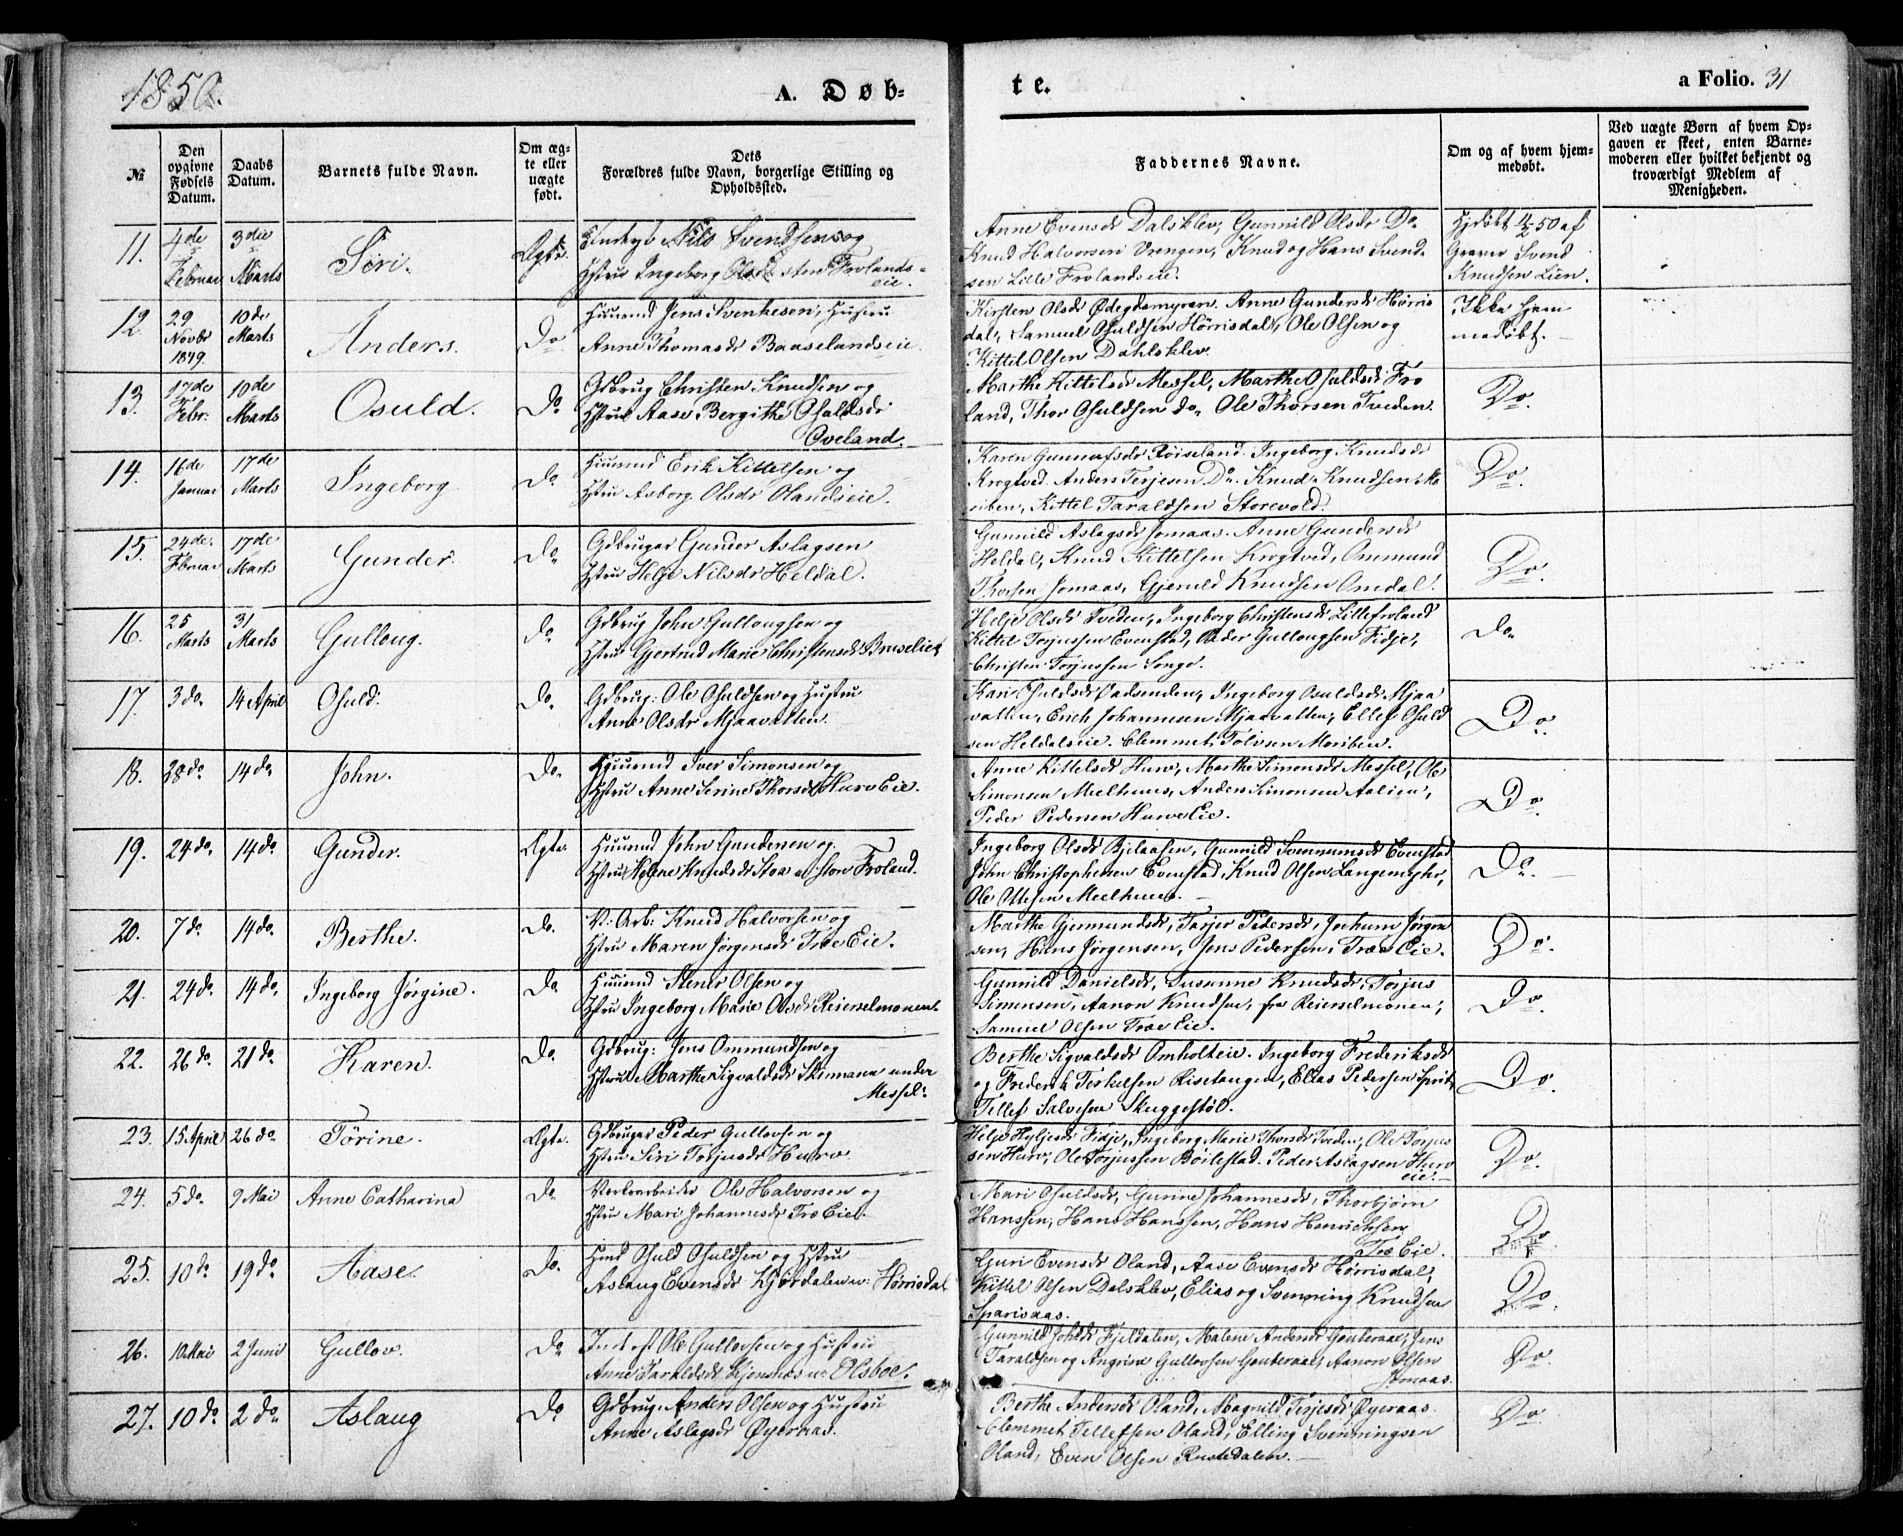 1850.
A. Døb-
te.
a Folio. 31
№
Den opgivne Fødsels Datum.
Daabs Datum.
Barnets fulde Navn.
Om ægte eller uægte født.
Dets Forældres fulde Navn, borgerlige Stilling og Opholdsted.
Faddernes Navne.
Om og af hvem hjemmedøbt.
Ved uægte Børn af hvem Opgaven er skeet, enten Barnemoderen eller hvilket bekjendt og troværdigt Medlem af Menigheden.
11. 4de Februar 3die Marts Siri. Ægte. Nils Svendsen og
Hstru Ingeborg Olsdr store Frolands-
eie.
Anne Evensdr Dalsklev, Gunnild Olsdr Do
Knud Halvorsen Vrengen, Knud og Hans Svend-
sen Lille Frolandseie.
Hjdøbt 4/2 50 af
Graver Svend
Knudsen Lien.
12. 29 Novbr 1849. 10de Marts Anders. Do Huusmd Jens Svenkesen, Hustru
Anne Thomasdr Baaselandseie.
Kirsten Olsdr Ødegdsmyren. Anne Gundersdr Hørris
dal, Samuel Osuldsen Hørrisdal, Ole Olsen og
Kittil Olsen Dahlsklev.
Ikke hjem
medøbt.
13. 17de Febr. 10de Marts Osuld. Do Gdbrug Christen Knudsen og
Hstru Aase Bergithe Osuldsdr
Oveland.
Marthe Kittilsdr Messel, Marthe Osuldsdr Fro
land, Thor Osuldsen do, Ole Thorsen Tveden.
Do.
14. 16de Januar 17de Marts Ingeborg Do Huusmd Erik Kittelsen og
Hstru Asborg Olsdr Olandseie.
Karen Gunnufsdr Røiseland. Ingeborg Knudsdr
Krogtved. Anders Terjesen Do. Knud Knudsen Mo
riben, Kittel Taraldsen Storevold.
Do.
15. 24de Februar 17de Marts Gunder. Do. Gdbruger Gunder Aslagsen
Hstru Helje Nilsdr Heldal.
Gunnild Aslagsdr Jomaas. Anne Gundersdr
Heldal, Knud Kittelsen Krogtved, Ommund
Thorsen Jomaas, Gjeruld Knudsen Omdal.
Do.
16. 25 Marts 31 Marts Gulloug. do. Gdbrug John Gullougsen og
Hstru Gjertrud Marie Christensdr Bruselien
Helje Olsdr Tveden, Ingeborg Christensdr Lillefroland
Kittel Torjussen Evenstad, Peder Gullougsen Fidje,
Christen Torjussen Songe.
do.
17. 3 do. 14 April Osuld. Do. Gdbrug: Ole Osuldsen og Hustru
Anne Olsdr Mjaavatten.
Kari Osuldsdr Vadsenden, Ingeborg Osuldsdr Mjaa
vatten, Erich Johannesen Mjaavatten, Ellef Osuld
sen Heldalseie. Clemmet Tolvsen Moriben.
Do.
18. 28 do 14 do. John. Do. Huusmd Iver Simonsen og
Hstru Anne Serine Thorsdr Hurv Eie.
Anne Kittelsdr Hurv, Marthe Simonsdr Messel, Ole
Simonsen Meelhuus, Anders Simonsen Aalien,
Peder Pedersen Hurv Eie.
Do.
19. 24 do. 14 do. Gunder. Ægte. Huusmd John Gundersen og
Hstru Helene Knudsdr Stoa u/ store Froland.
Ingeborg Olsdr Bjelaasen, Gunnild Svennumsdr Evenstad
John Christophersen Evenstad, Knud Olsen Langemyhr,
Ole Ottesen Meelhuus.
Do.
20. 7 do 14 do. Berthe. do. V: Arb: Knud Halvorsen og
Hstru Maren Jørgensdr Træ Eie.
Marthe Gjermundsdr, Tarjer Pedersdr, Jochum Jørgen
sen, Hans Jørgensen, Jens Pedersen, Træ Eie.
Do.
21. 24 do 14 do. Ingeborg Jørgine. Do. Huusmd Stener Olsen og
Hstru Ingeborg Marie Olsdr Reierselmonen.
Gunnild Danielsdr, Susanne Knudsdr, Torjus
Simonsen, Aanon Knudsen, fra Reierselmonen,
Samuel Olsen Træ Eie.
Do.
22. 26 do. 21 do. Karen. Do. Gdbrug: Jens Ommundsen og
Hstru Marthe Sigvaldsdr Skinmana under
Messel.
Berthe Sigvaldsdr Omholteie. Ingeborg Frederiksdr
og Frederik Terkelsen Risetangen, Elias Pedersen Sprit
Tellef Salvesen Skuggestøl.
Do.
23. 15 April 26 do. Tørine. Ægte. Gdbruger Peder Gullovsen og
Hstru Siri Torjusdr Hurv.
Helje Hyljesdr Fidje, Ingeborg Marie Thorsdr Tveden, Ole Torjus
sen Hurv, Ole Torjussen Bøilestad. Peder Aslagsen Hurv
eie.
Do.
24. 5 do. 9 Mai Anne Catharina Do. Verksarbeider Ole Halvorsen og
Hstru Mari Johannesdr Træ Eie.
Mari Osuldsdr, Gurine Johannesdr, Thorbjørn
Hanssen, Hans Hanssen, Hans Henrichsen,
Træ Eie.
Do
25. 10 do. 19 do. Aase. Do. Hmd Osuld Osuldsen og Hstru
Aslaug Evensdr Kjørdalen u: Hørrisdal
Guri Evensdr Oland, Aase Evensdr Hørrisdal,
Kittel Olsen Dalsklev, Elias og Svenning Knudsen
Sparisaas.
Do.
26. 10 Mai 2 Juni Gullov. Do Indst Ole Gullovsen og Hustru
Anne Taraldsdr Hjemnæs u: Olsboe.
Gunnild Johsdr Fjeldalen, Malene Andersdr Gouteraas, Jens
Taraldsen og Angrim Gullovsen Gouteraas, Aanon Olsen
Jomaas.
Do.
27. 10 do 2 do. Aslaug Do Gdbrug. Anders Olsen og Hustru
Anne Aslagsdr Øyeraas.
Berthe Andersdr Oland, Magnild Terjesdr Øyeraas
Clemmet Tellefsen Oland, Elling Svenningsen
Oland, Even Olsen Rustedalen.
Do.